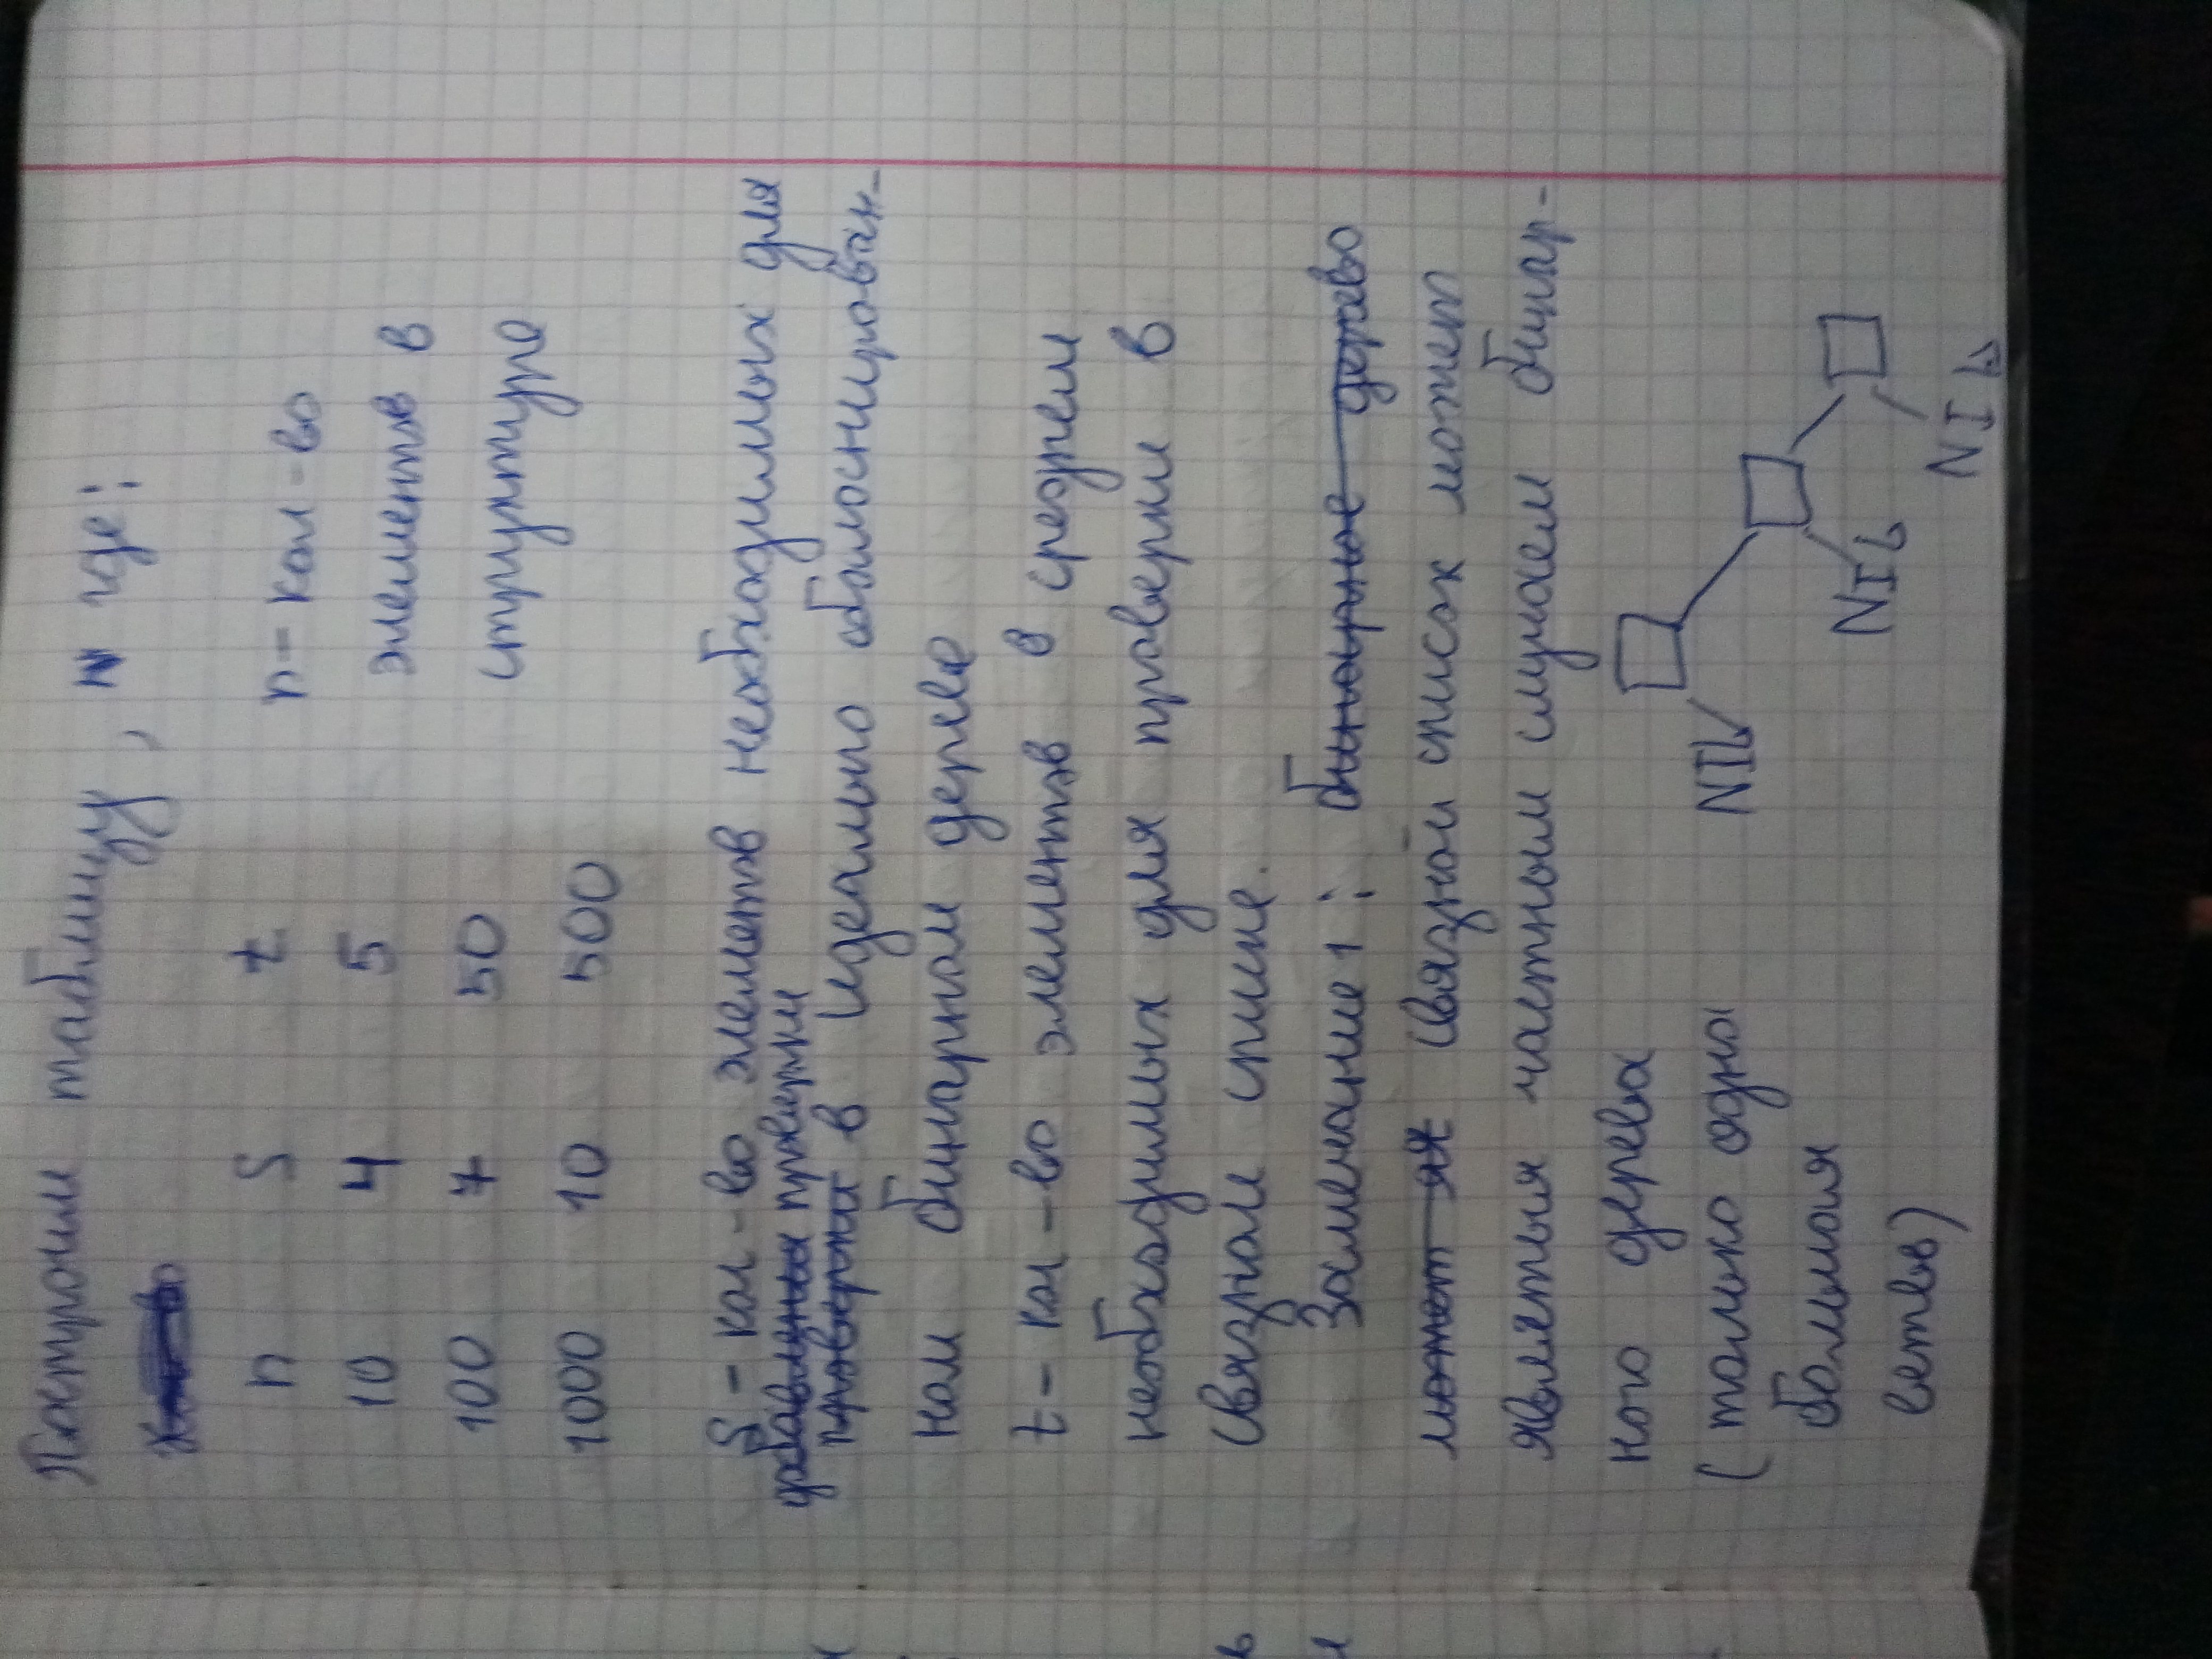 Построим таблицу, где:
n S t
10 4 5
100 7 50
1000 10 500
n - кол-во
элементов в
структуре
S - кол-во элеметов необходимых для
добавления проверки
проверки в идеально сбалоснирован-
ном бинарном дереве
t - кол-во элементов в среднем
необходимых для проверки в
связном списке.
Замечание 1: бинарное дерево
может яв связной список может
являться частным случаем бинар-
ного дерева
(только одна
большая
ветвь)
NIL
NIL
NIL